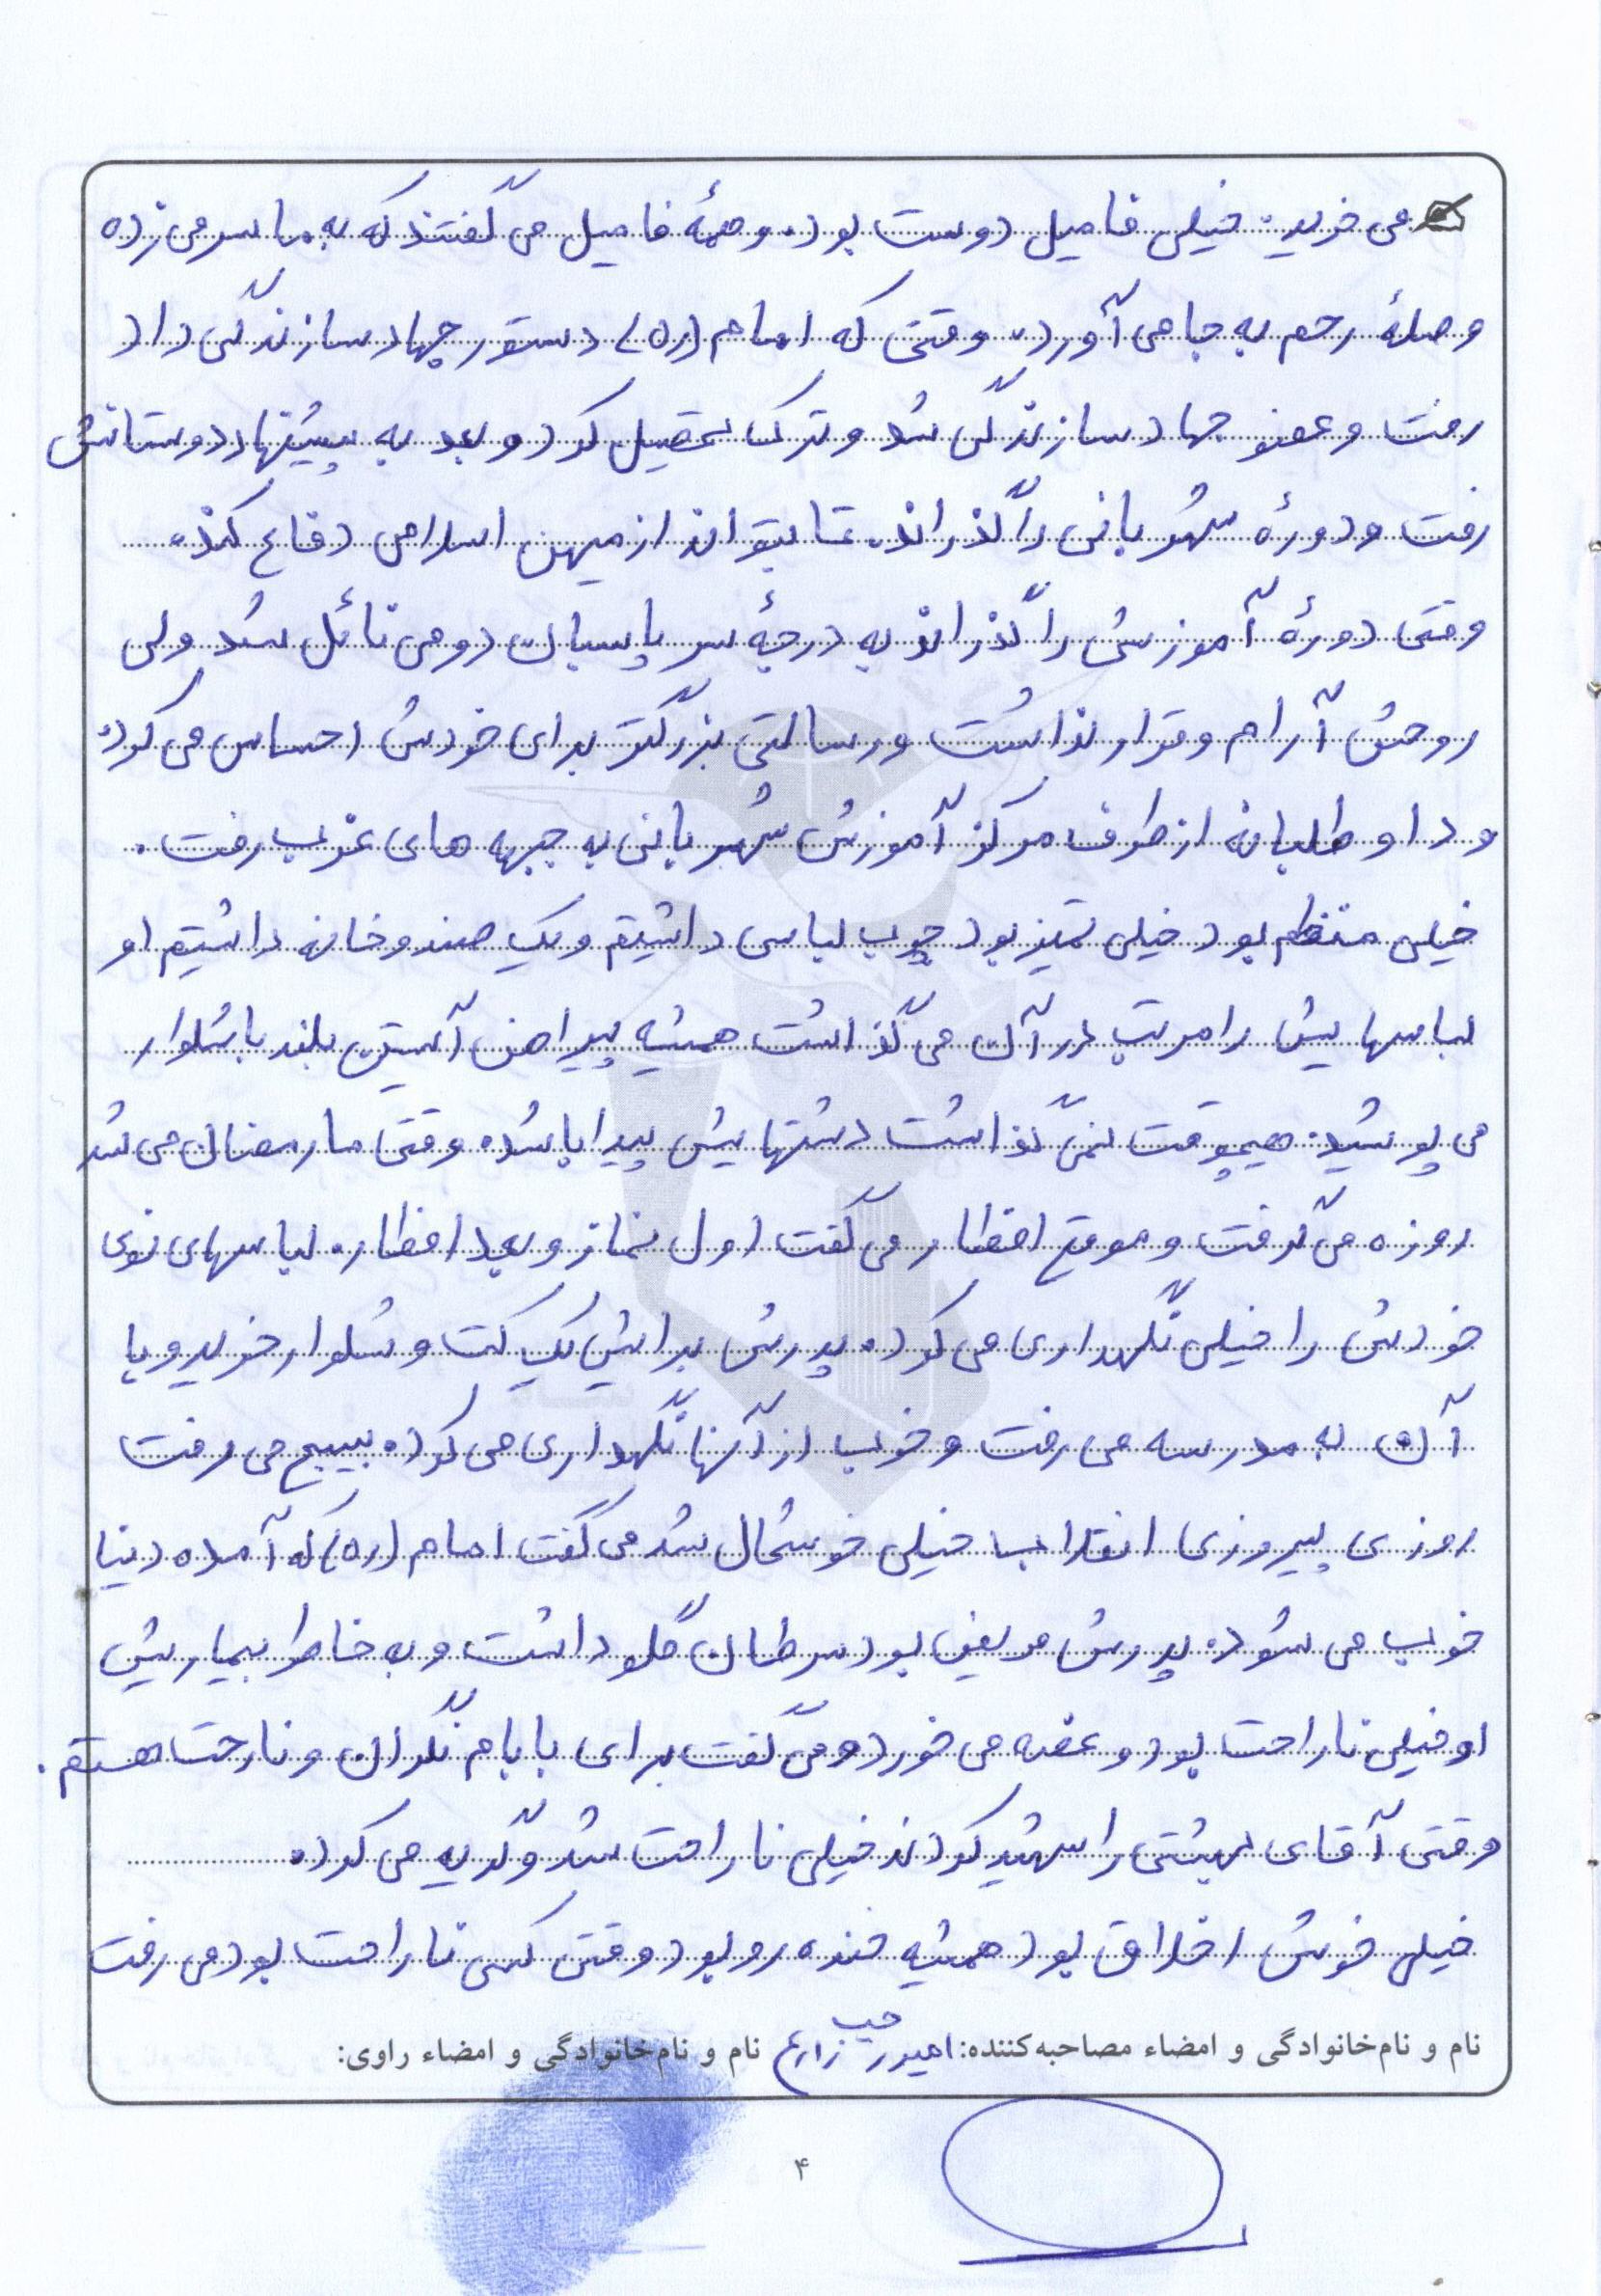 می خرید. خیلی فامیل دوست بود. و همهٔ فامیل می گفتند که به ما سر می زده
و صلهٔ رحم به جا می آورد. وقتی که امام (ره) دستور جهاد سازندگی داد
رفت و عضو جهاد سازندگی شد و ترک تحصیل کرد و بعد به پیشنهاد دوستانش
رفت و دورهٔ شهربانی را گذراند. تا بتواند از میهن اسلامی دفاع کند.
وقتی دورهٔ آموزش را گذراند به درجهٔ سر پاسبان دومی نائل شد ولی
روحش آرام و قرار نداشت و رسالتی بزرگتر برای خودش احساس می کرد.
و داوطلبانه از طرف مرکز آموزش شهربانی به جبهه های غرب رفت.
خیلی منظم بود خیلی تمیز بود چوب لباسی داشتیم و یک صندوخانه داشتیم او
لباسهایش را مرتب در آن می گذاشت همیشه پیراهن آستین بلند با شلوار
می پوشید. هیچوقت نمی گذاشت دستهایش پیدا باشده وقتی ما رمضان می شد
روزه می گرفت و موقع افطار می گفت اول نماز و بعد افطار. لباسهای نوی
خودش را خیلی نگهداری می کرد. پدرش برایش یک کت و شلوار خرید و با
آن به مدرسه می رفت و خوب از آنها نگهداری می کرد. بسیج می رفت
روزی پیروزی انقلاب خیلی خوشحال شد می گفت امام (ره) که آمده دنیا
خوب می شود. پدرش مریض بود سرطان گلو داشت و به خاطر بیماریش
او خیلی ناراحت بود و غصه می خورد و می گفت برای بابام نگران و نارحت هستم.
وقتی آقای بهشتی را شهید کردند خیلی ناراحت شد و گریه می کرد.
خیلی خوش اخلاق بود همیشه خنده رو بود وقتی کسی ناراحت بود می رفت
نام و نام‌خانوادگی و امضاء مصاحبه‌کننده: نام و نام‌خانوادگی و امضاء راوی:
۴